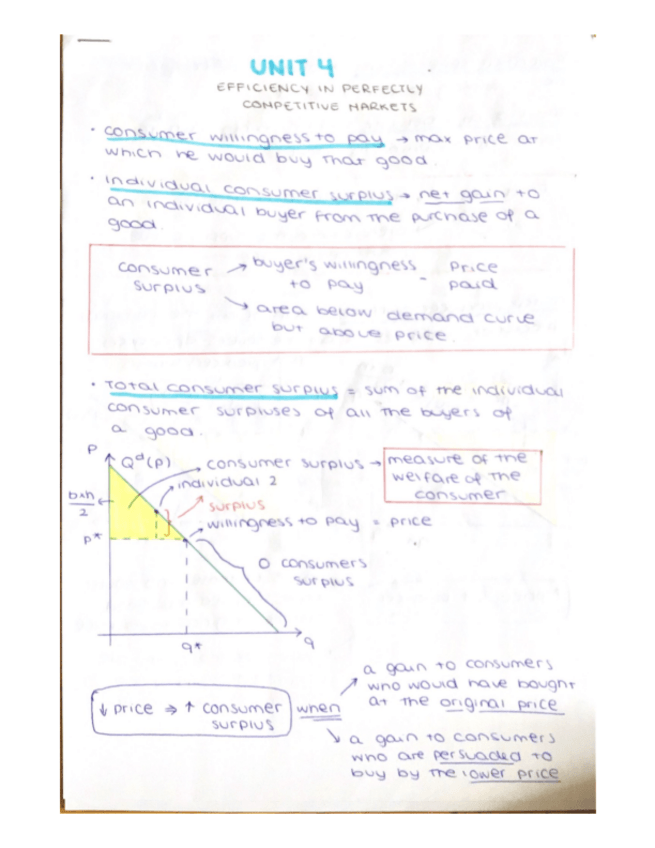 UNIT 4
EFFICIENCY IN PERFECTLY
COMPETITIVE MARKETS
• consumer willingness to pay → max price at
which he would buy that good.
• Individual consumer surplus → net gain to
an individual buyer from the purchase of a
good.
consumer surplus → buyer's willingness to pay - Price paid
↘ area below demand curve
but above price.
• Total consumer surplus = sum of the individual
consumer surpluses of all the buyers of
a good.
P
Q^d(P)
consumer surplus → measure of the welfare of the consumer
individual 2
surplus
b×h/2
willingness to pay = price
P*
0 consumers
surplus
q*
q
↓ price ⇒ ↑ consumer surplus when
↗ a gain to consumers
who would have bought
at the original price
↘ a gain to consumers
who are persuaded to
buy by the lower price